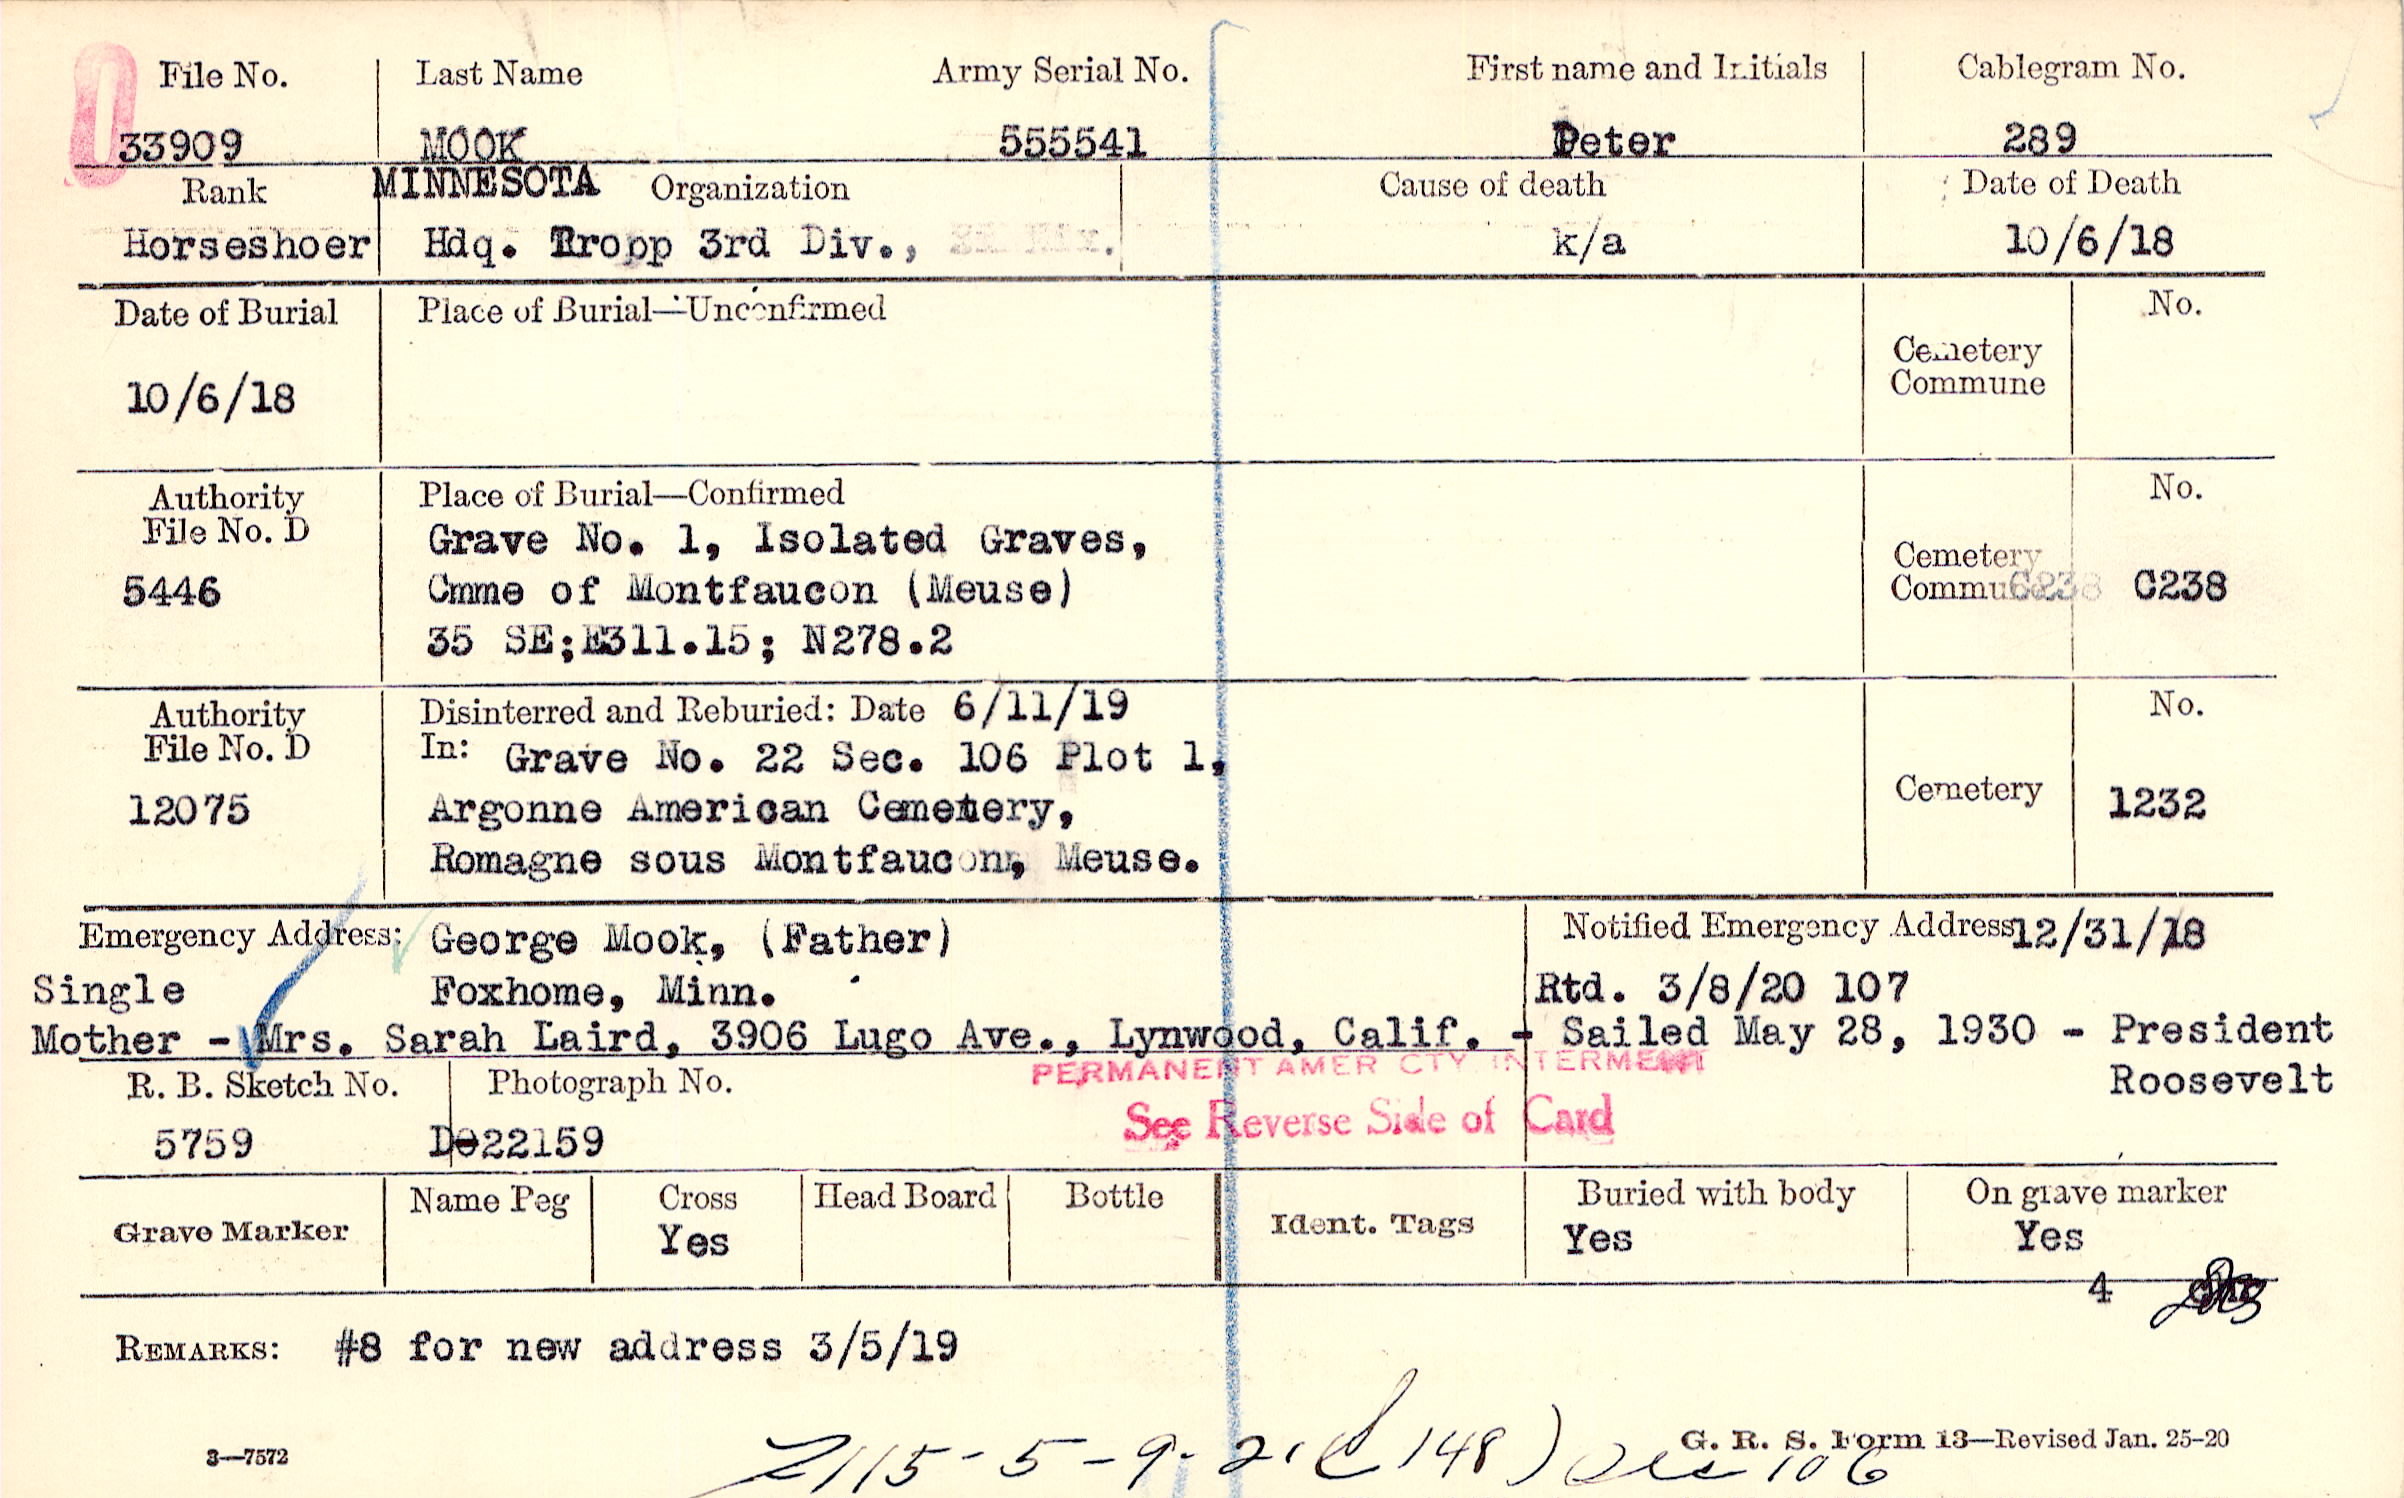 File No. Last Name Army Serial No. First name and Initials Cablegram No.
33909 MOOK 555541 Peter 289
Rank MINNESOTA Organization Cause of death Date of Death
Horseshoer Hdq. Tropp 3rd Div., k/a 10/6/18
Date of Burial Place of Burial—Unconfirmed No.
Cemetery
Commune
10/6/18
Authority Place of Burial—Confirmed No.
File No. D Grave No. 1, Isolated Graves, Cemetery
5446 Cmme of Montfaucon (Meuse) Commune C238 C238
35 SE;E311.15; N278.2
Authority Disinterred and Reburied: Date 6/11/19 No.
File No. D In: Grave No. 22 Sec. 106 Plot 1,
12075 Argonne American Cemetery, Cemetery 1232
Romagne sous Montfaucon, Meuse.
Emergency Address: George Mook, (Father) Notified Emergency Address 12/31/18
Single Foxhome, Minn. Rtd. 3/8/20 107
Mother - Mrs. Sarah Laird, 3906 Lugo Ave., Lynwood, Calif. - Sailed May 28, 1930 - President
PERMANENT AMER CTY INTERMENT
R. B. Sketch No. Photograph No. Roosevelt
See Reverse Side of Card
5759 D-22159
Grave Marker Name Peg Cross Head Board Bottle Ident. Tags Buried with body On grave marker
Yes Yes Yes
4
REMARKS: #8 for new address 3/5/19
2115-5-9-21 148) Sec 106
3—7572 G. R. S. Form 13—Revised Jan. 25-20